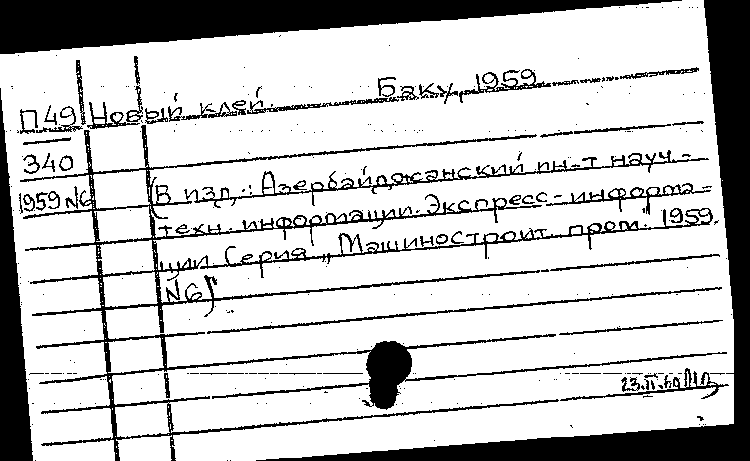 П49 Новый клей. Баку, 1959
340
1959 N6 (В изд.: Азербайджанский ин-т науч.-
техн. информации. Экспресс-информа=
ции. Серия „Машиностроит. пром." 1959.
N6)
23.II.60